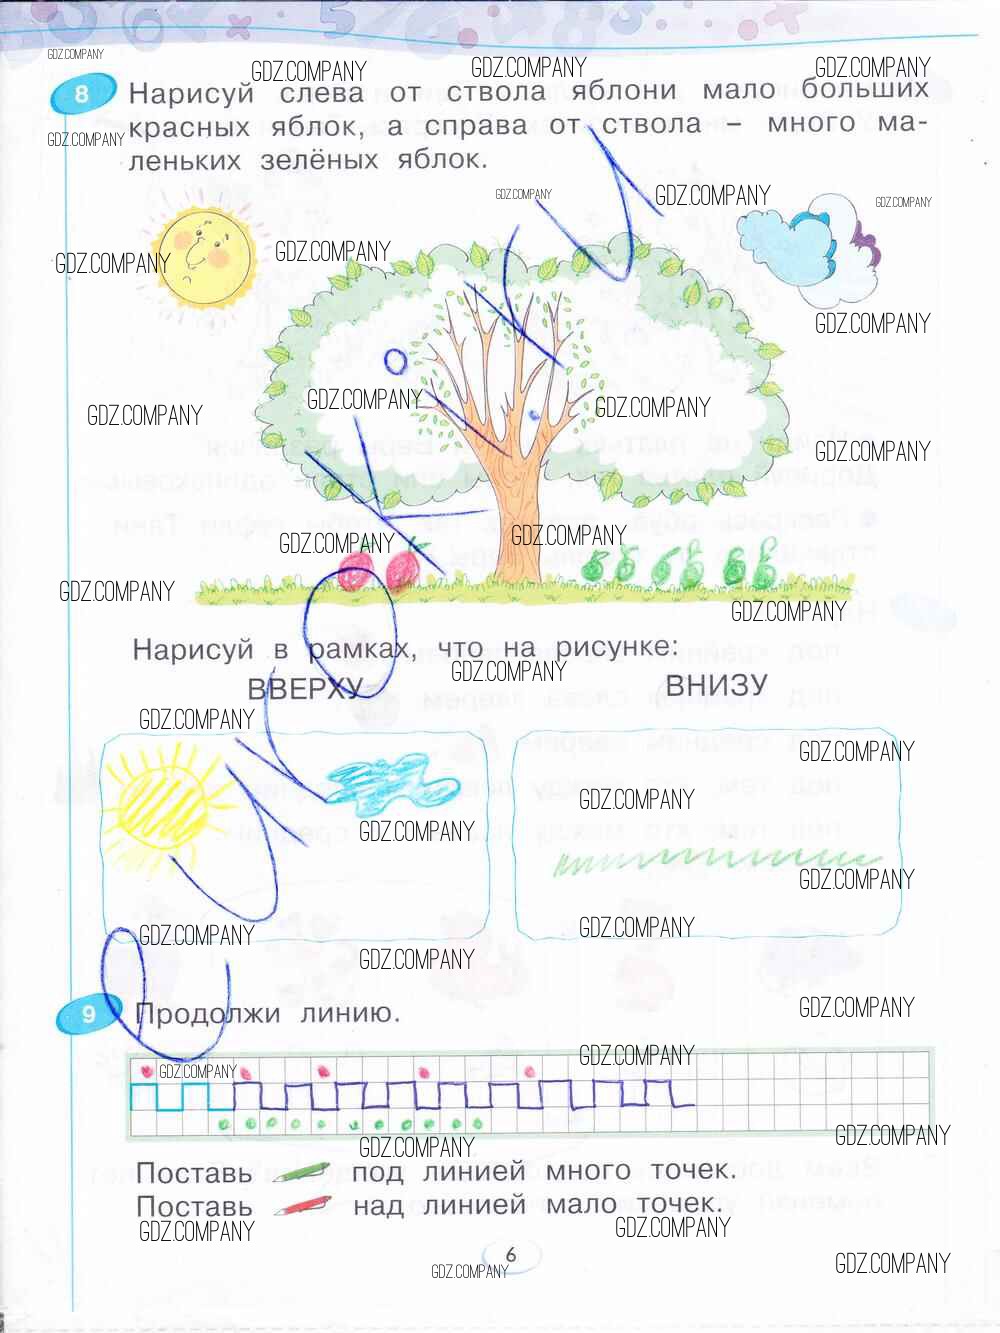 GDZ.COMPANY
GDZ.COMPANY GDZ.COMPANY GDZ.COMPANY
8 Нарисуй слева от ствола яблони мало больших
красных яблок, а справа от ствола – много ма-
GDZ.COMPANY
леньких зелёных яблок.
GDZ.COMPANY GDZ.COMPANY GDZ.COMPANY
GDZ.COMPANY GDZ.COMPANY
GDZ.COMPANY
GDZ.COMPANY GDZ.COMPANY GDZ.COMPANY
GDZ.COMPANY
GDZ.COMPANY GDZ.COMPANY
GDZ.COMPANY GDZ.COMPANY
Нарисуй в рамках, что на рисунке:
GDZ.COMPANY
ВВЕРХУ ВНИЗУ
GDZ.COMPANY
GDZ.COMPANY
GDZ.COMPANY
GDZ.COMPANY
GDZ.COMPANY
GDZ.COMPANY GDZ.COMPANY
GDZ.COMPANY
9 Продолжи линию.
GDZ.COMPANY
GDZ.COMPANY
GDZ.COMPANY
GDZ.COMPANY GDZ.COMPANY
Поставь под линией много точек.
Поставь над линией мало точек.
GDZ.COMPANY GDZ.COMPANY
6
GDZ.COMPANY GDZ.COMPANY